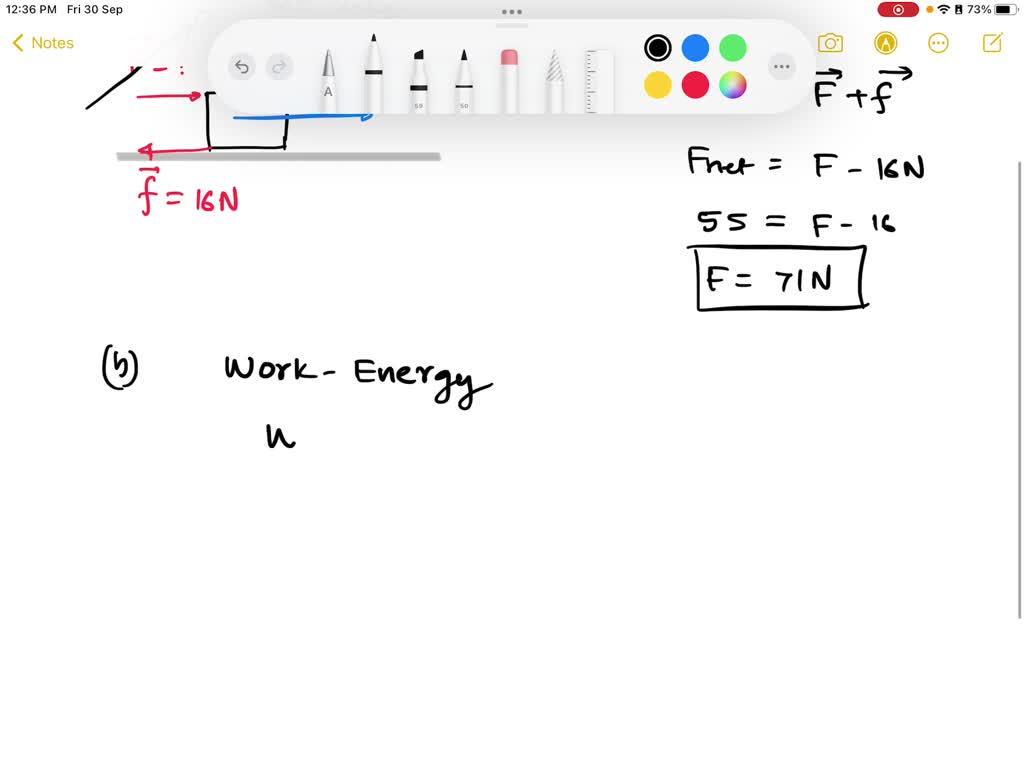 12:36 PM Fri 30 Sep
73%
Notes
A
59
50
F + f
f = 16N
Fnet = F - 16N
55 = F - 16
F = 71N
(b) Work - Energy
W